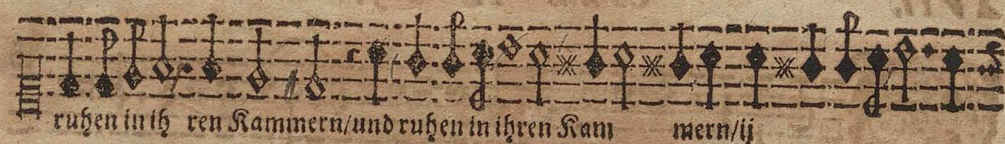 ruhen in ih ren Kammern/und ruhen in ihren Kam mern/ij